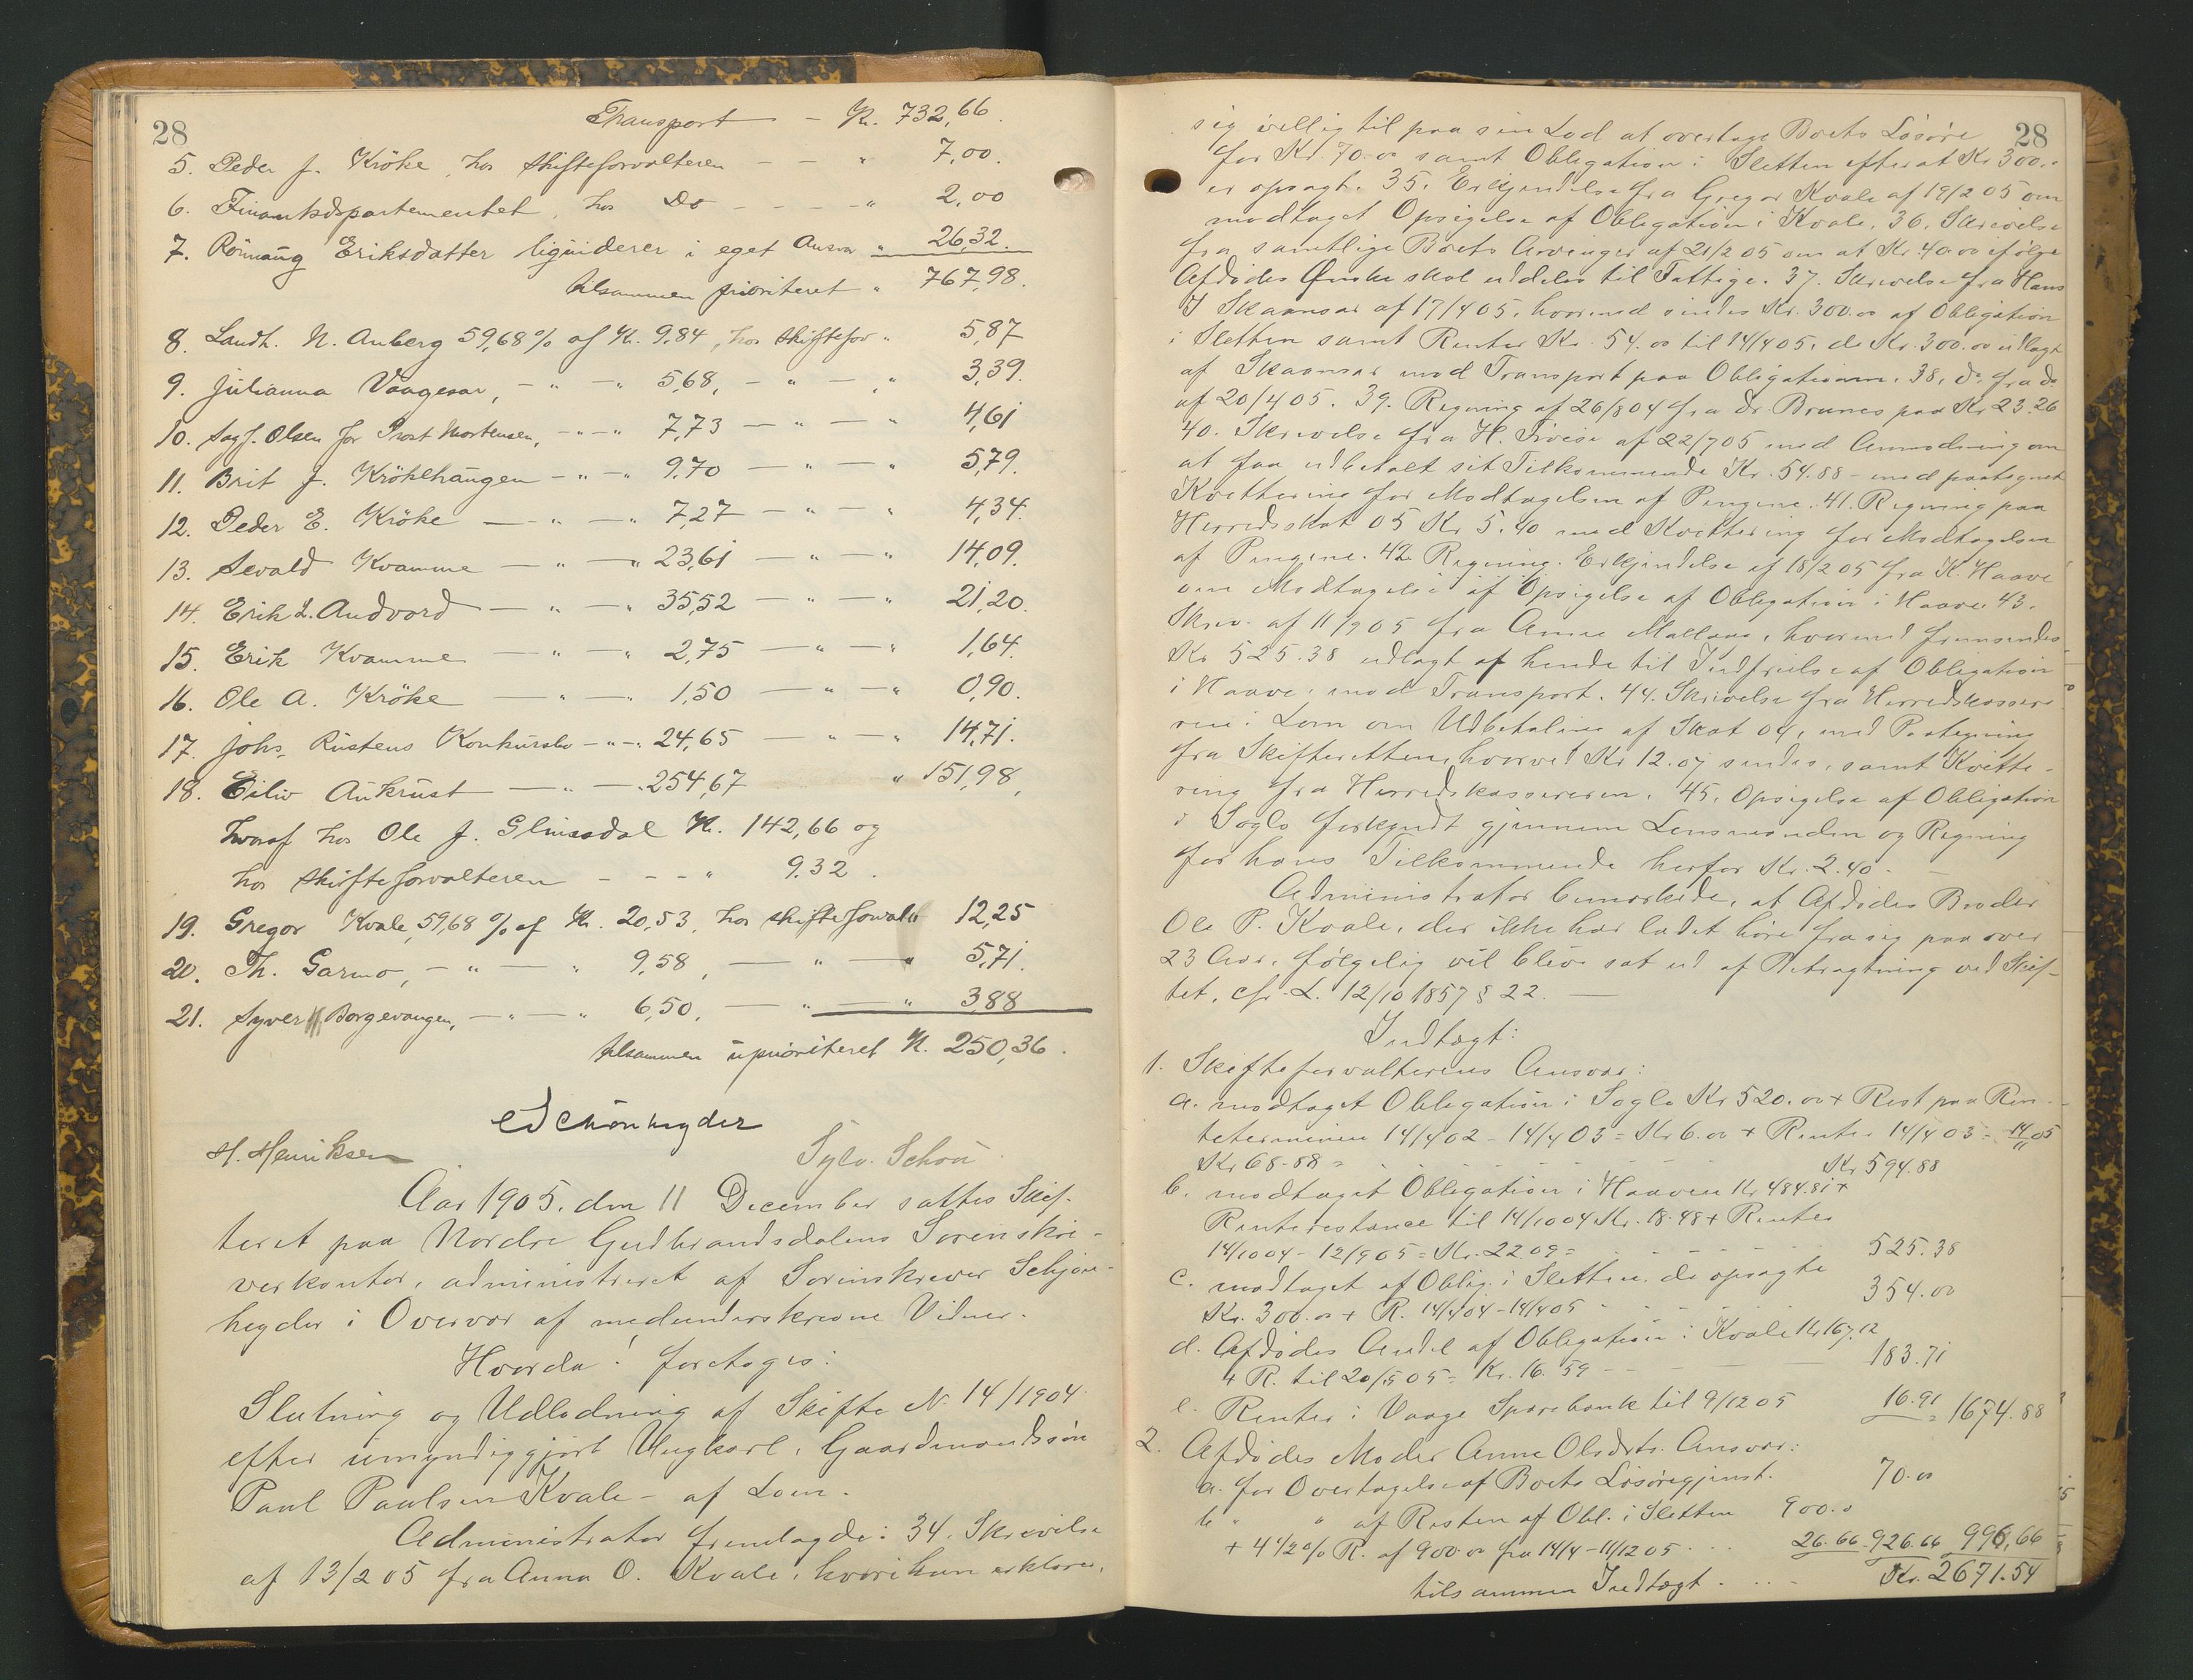 28
Transport - Kr. 732,66.
5. Peder J. Kröke, hos Skifteforvalteren - - " 7,00.
6. Finantsdepartementet, hos Do - - - " 2,00
7. Rönnaug Eriksdatter liquiderer i eget Ansva " 26,32.
tilsammen prioriteret " 767,98.
8. Landh. N. Auberg 59,68 % af Kr. 9,84, hos Skiftefor " 5,87
9. Julianna Vaagesar, - " - " 5,68, - " - " 3,39.
10. Sagf. Olsen for Provst Mortensen, - " - " 7,73 - " - " 4,61
11. Brit J. Kröklhaugen - " - " 9,70 - " - " 5,79.
12. Peder E. Kröke - " - " 7,27 - " - " 4,34.
13. Sevald Kvamme - " - " 23,61 - " - " 14,09.
14. Erik L. Andvord - " - " 35,52 - " - " 21,20.
15. Erik Kvamme - " - " 2,75 - " - " 1,64.
16. Ole A. Kröke - " - " 1,50 - " - " 0,90.
17. Johs. Rustens Konkursbo - " - " 24,65 - " - " 14,71.
18. Eiliv Aukrust - " - " 254,67 " 151,98,
hvoraf hos Ole J. Glimsdal Kr. 142,66 og
hos Skifteforvalteren - - - " 9.32.
19. Gregor Kvale, 59,68 % af Kr. 20,53, hos Skifteforvalt 12,25
20. Th. Garmo, - " - " 9,58, - " - " 5,71.
21. Syver Borgevangen, - " - " 6,50, - " - " 3,88
tilsammen upriöriteret Kr. 250,36.
E Schönheyder
H. Henriksen Sylv. Schou
Aar 1905, den 11 December sattes Skif-
teret paa Nordre Gudbrandsdalens Sorenskri-
verkontor, administreret af Sorenskriver Schjøn-
heyder i Overvær af medunderskrevne Vidner.
Hvorda! foretoges:
Slutning og Udlodning af Skifte N. 14/1904
efter umyndiggjort Ungkarl, Gaardmandssøn
Paul Paulsen Kvale - af Lom.
Administrator fremlagde: 34. Skrivelse
af 13/2 05 fra Anna O. Kvale, hvori hun erklærer
28
sig villig til paa sin Lod at overtage Boets Løsøre
for Kr. 70.00 samt Obligation i Sletten efterat Kr 300.00
er opsagt. 35. Erkjendelse fra Gregor Kvale af 19/2 05 om
modtaget Opsigelse af Obligation i Kvale. 36. Skrivelse
fra samtlige Boets Arvinger af 21/2 05 om at Kr. 40.00 ifølge
Afdødes Ønske skal uddeles til Fattige. 37. Skrivelse fra Hans
J Skaansar af 17/4 05, hvormed sendes Kr. 300.00 af Obligation
i Sletten samt Renter Kr. 54.00 til 14/4 05, de Kr. 300.00 udlagt
af Skaansar mod Transport paa Obligationen. 38. do. fra do.
af 20/4 05. 39. Regning af 26/8 04 fra Dr. Brunes paa Kr 23.26
40. Skrivelse fra H. af 22/7 05 med Anmodning om
at faa udbetalt sit Tilkommende Kr. 54.88 - med paategnet
Kvittering for Modtagelsen af Pengene. 41. Regning paa
Herredsskat 05 Kr 5.40 med Kvittering for Modtagelsen
af Pengene. 42. Regning. Erkjendelse af 18/2 05 fra K. Haave
om Modtagelse af Opsigelse af Obligation i Haave. 43.
Skriv. af 11/9 05 fra Anne, hvormed fremsendes
Kr 525.38 udlagt af hende til Indfrielse af Obligation
i Haave, mod Transport. 44. Skrivelse fra Herredskassere-
ren i Lom om Udbetaling af Skat 04, med Paategning
fra Skifteretten hvorved Kr 12.07 sendes, samt Kvitte-
ring fra Herredskassereren. 45. Opsigelse af Obligation
i Soglo forkyndt gjennem Lensmanden og Regning
for hans Tilkommende herfor Kr. 2.40. -
Administrator bemærkede, at Afdødes Broder
Ole P. Kvale, der ikke har ladet høre fra sig paa over
23 Aar, følgelig vil blive sat ud af Betragtning ved Skif-
tet, cfr. L. 12/10 1857 § 22. -
Indtægt:
1. Skifteforvalterens Ansvar:
a. modtaget Obligation i Soglo Kr 520.00 + Rest paa Ren-
teterminen 14/4 02 - 14/4 03 = Kr 6.00 + Renter 14/4 03 - 14/11 05
Kr 68.88 = - - - - - Kr 594.88
b. modtaget Obligation i Haaven Kr 484.81 +
Renterestance til 14/10 04 Kr. 18.48 + Renter
14/10 04 - 12/9 05 = Kr. 22.09 = - - - - 525.38
c. modtaget af Oblig. i Sletten de opsagte
Kr. 300.00 + R. 14/4 04 - 14/4 05 - - - - 354.00
d. Afdødes Andel af Obligation i Kvale Kr 167.12
+ R. til 20/5 05 = Kr. 16.59 - - - 183.71
e. Renter i Vaage Sparebank til 9/12 05 16.91 = 1674.88
2. Afdødes Moder Anne Olsdtrs. Ansvar:
a. for Overtagelse af Boets Løsøregjenst. 70.00
b. " " af Resten af Obl. i Sletten 900.00
+ 4 1/2 % R. af 900.00 fra 14/4 - 11/12 05 . . . 26.66 926.66 996,66
tilsammen Indtægt . . . - Kr. 2671.54